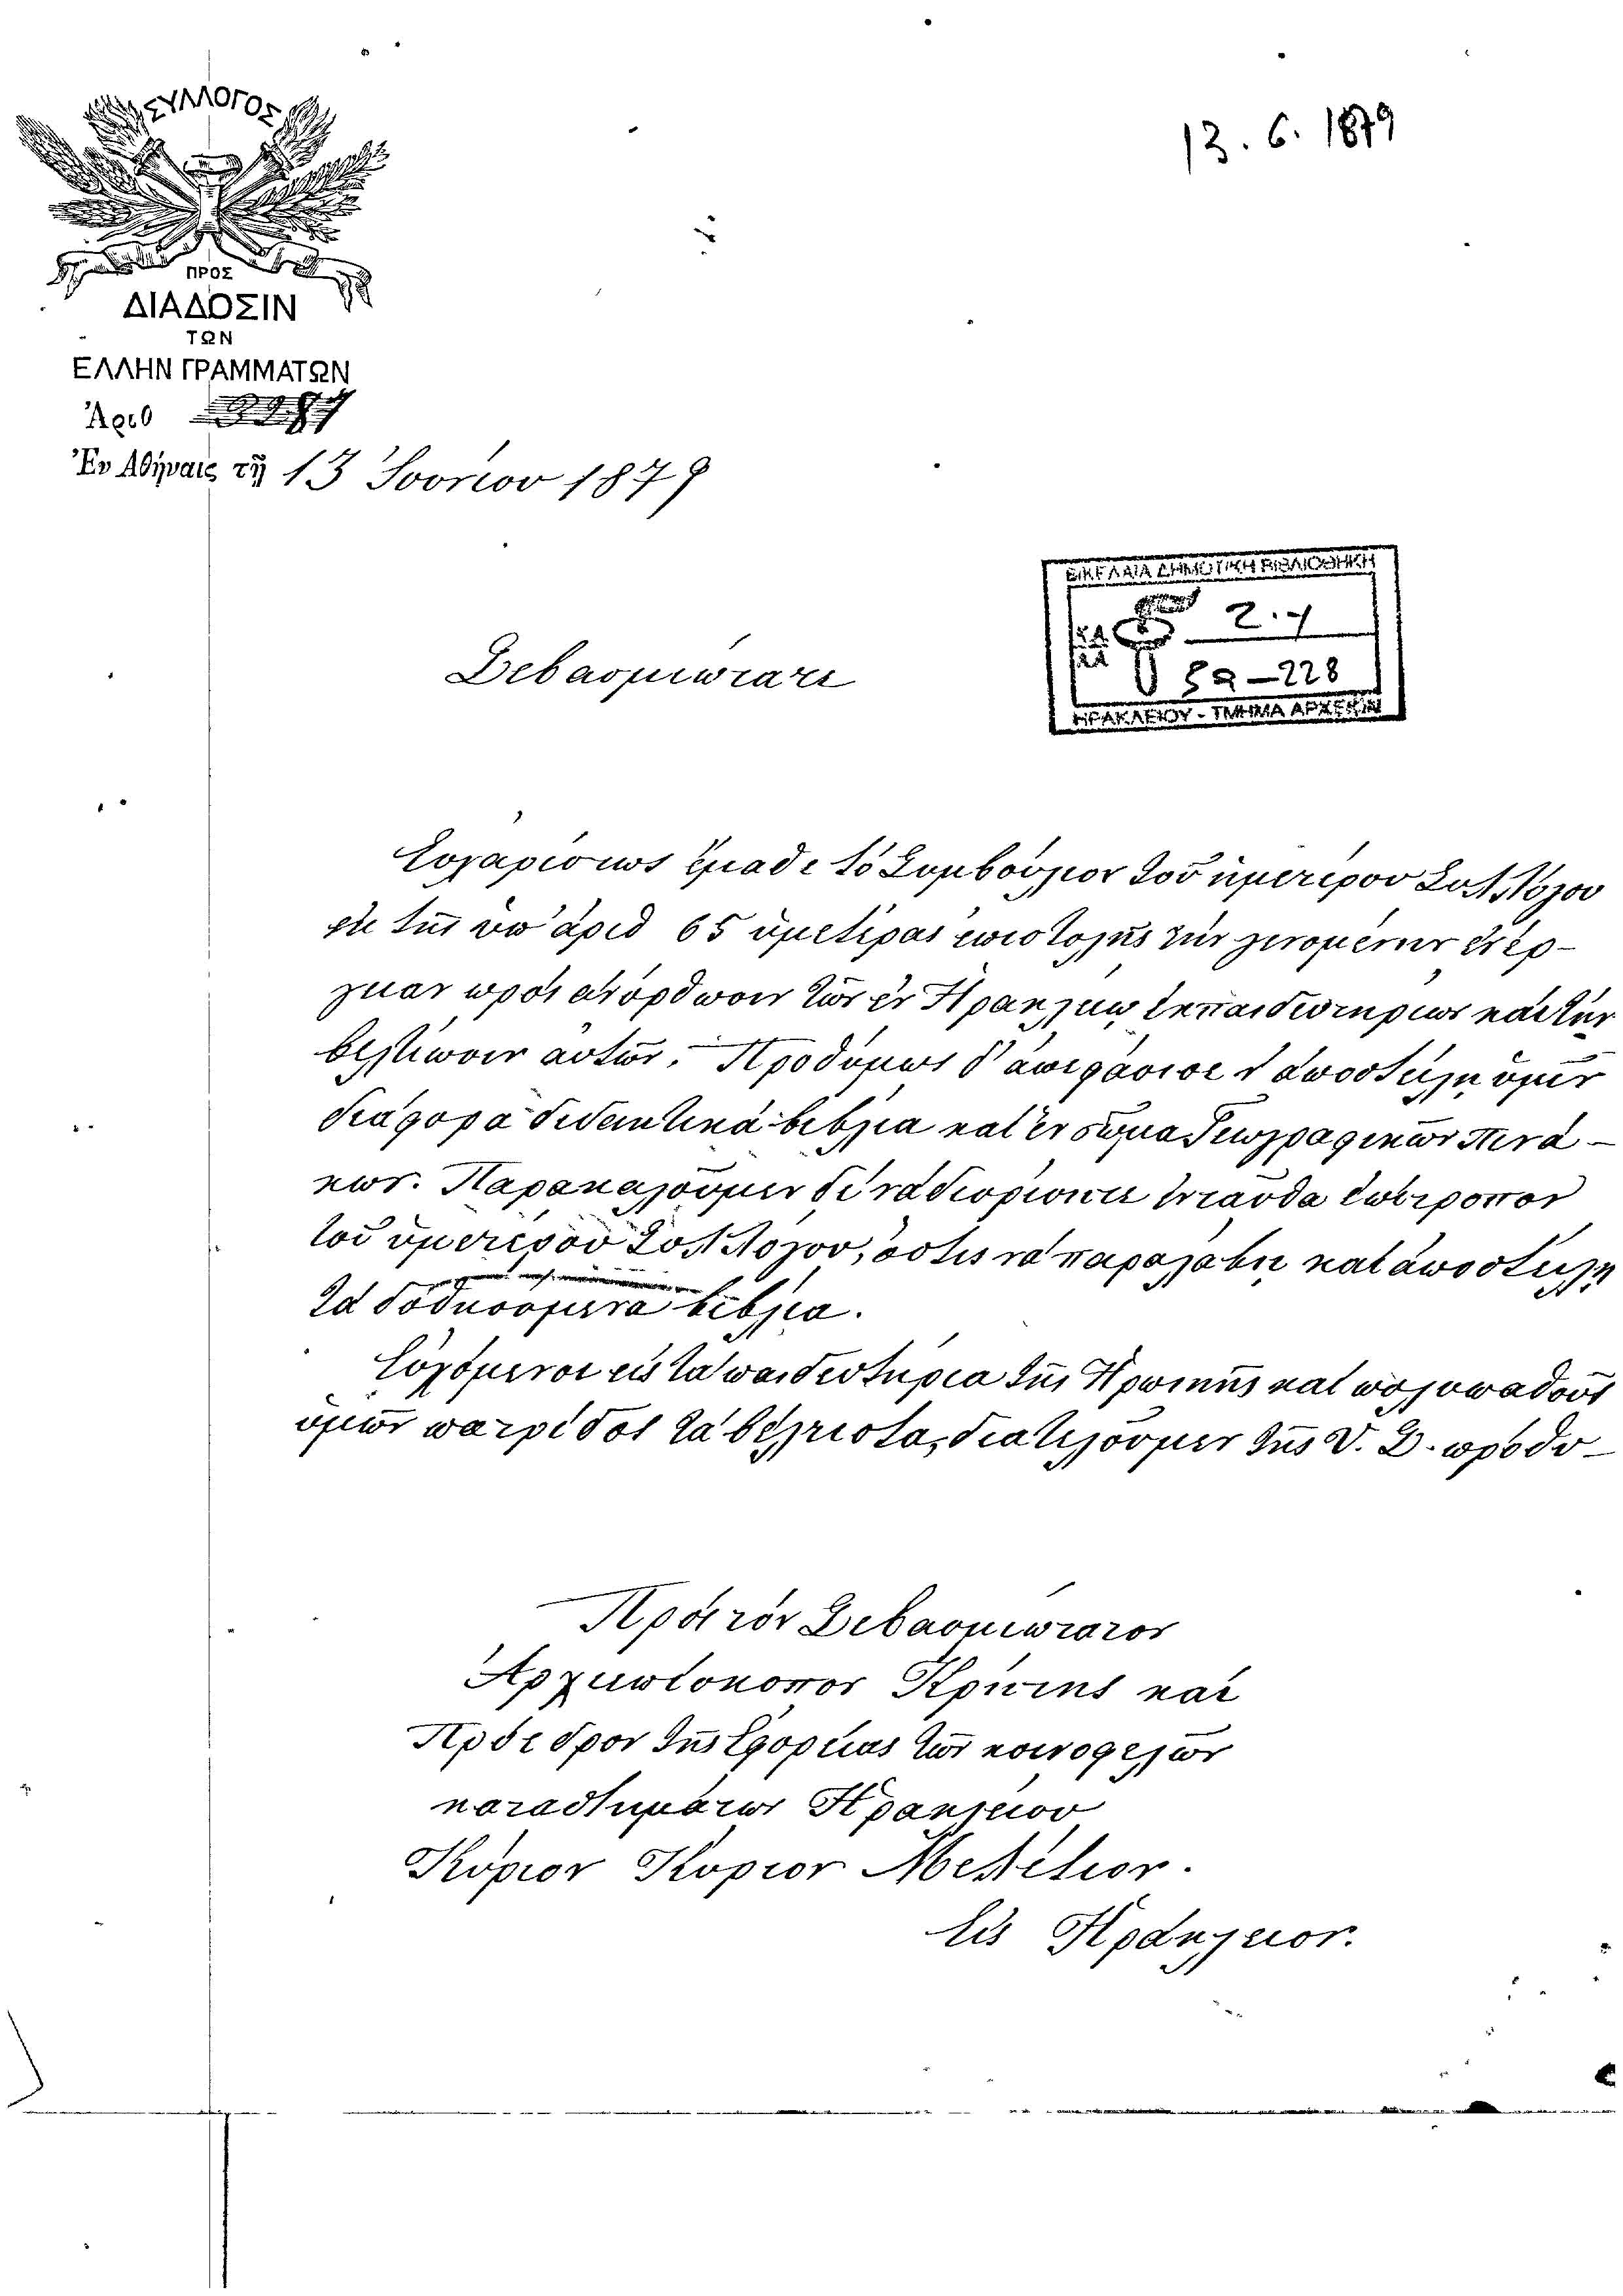 13.6.1879
ΣΥΛΛΟΓΟΣ
ΠΡΟΣ
ΔΙΑΔΟΣΙΝ
ΤΩΝ
ΕΛΛΗΝ ΓΡΑΜΜΑΤΩΝ
Ἀριθ
Ἐν Ἀθήναις τῇ 13 Ἰουνίου 1879
ΒΙΚΕΛΑΙΑ ΔΗΜΟΤΙΚΗ ΒΙΒΛΙΟΘΗΚΗ
59-228
ΗΡΑΚΛΕΙΟΥ - ΤΜΗΜΑ ΑΡΧΕΙΩΝ
Σεβασμιώτατε
Εὐχαρίστως ἔμαθε τὸ Συμβούλιον τοῦ ἡμετέρου Συλλόγου
ἐκ τῆς ὑπ' ἀριθ 65 ὑμετέρας ἐπιστολῆς τὴν γινομένην ἐνέρ-
γειαν πρὸς ἀνόρθωσιν τῶν ἐν Ἡρακλείῳ ἐκπαιδευτηρίων καὶ τὴν
βελτίωσιν αὐτῶν. Προθύμως δ' ἀπεφάσισε ν' ἀποστείλῃ ὑμῖν
διάφορα διδακτικὰ βιβλία καὶ ἓν σῶμα Γεωγραφικῶν Πινά-
κων. Παρακαλοῦμεν δὲ νὰ διορίσητε ἐνταῦθα ἐπίτροπον
τοῦ ὑμετέρου Συλλόγου, ὅστις νὰ παραλάβῃ καὶ ἀποστείλῃ
τὰ δοθησόμενα βιβλία.
Εὐχόμενοι εἰς τὰ παιδευτήρια τῆς Ἡρωικῆς καὶ πολυπαθοῦς
ὑμῶν πατρίδος τὰ βέλτιστα, διατελοῦμεν τῆς Υ. Σ. πρόθυ-
Πρὸς τὸν Σεβασμιώτατον
Ἀρχιεπίσκοπον Κρήτης καὶ
Πρόεδρον τῆς Ἐφορείας τῶν κοινοφελῶν
καταστημάτων Ἡρακλείου
Κύριον Κύριον Μελέτιον.
Εἰς Ἡράκλειον.